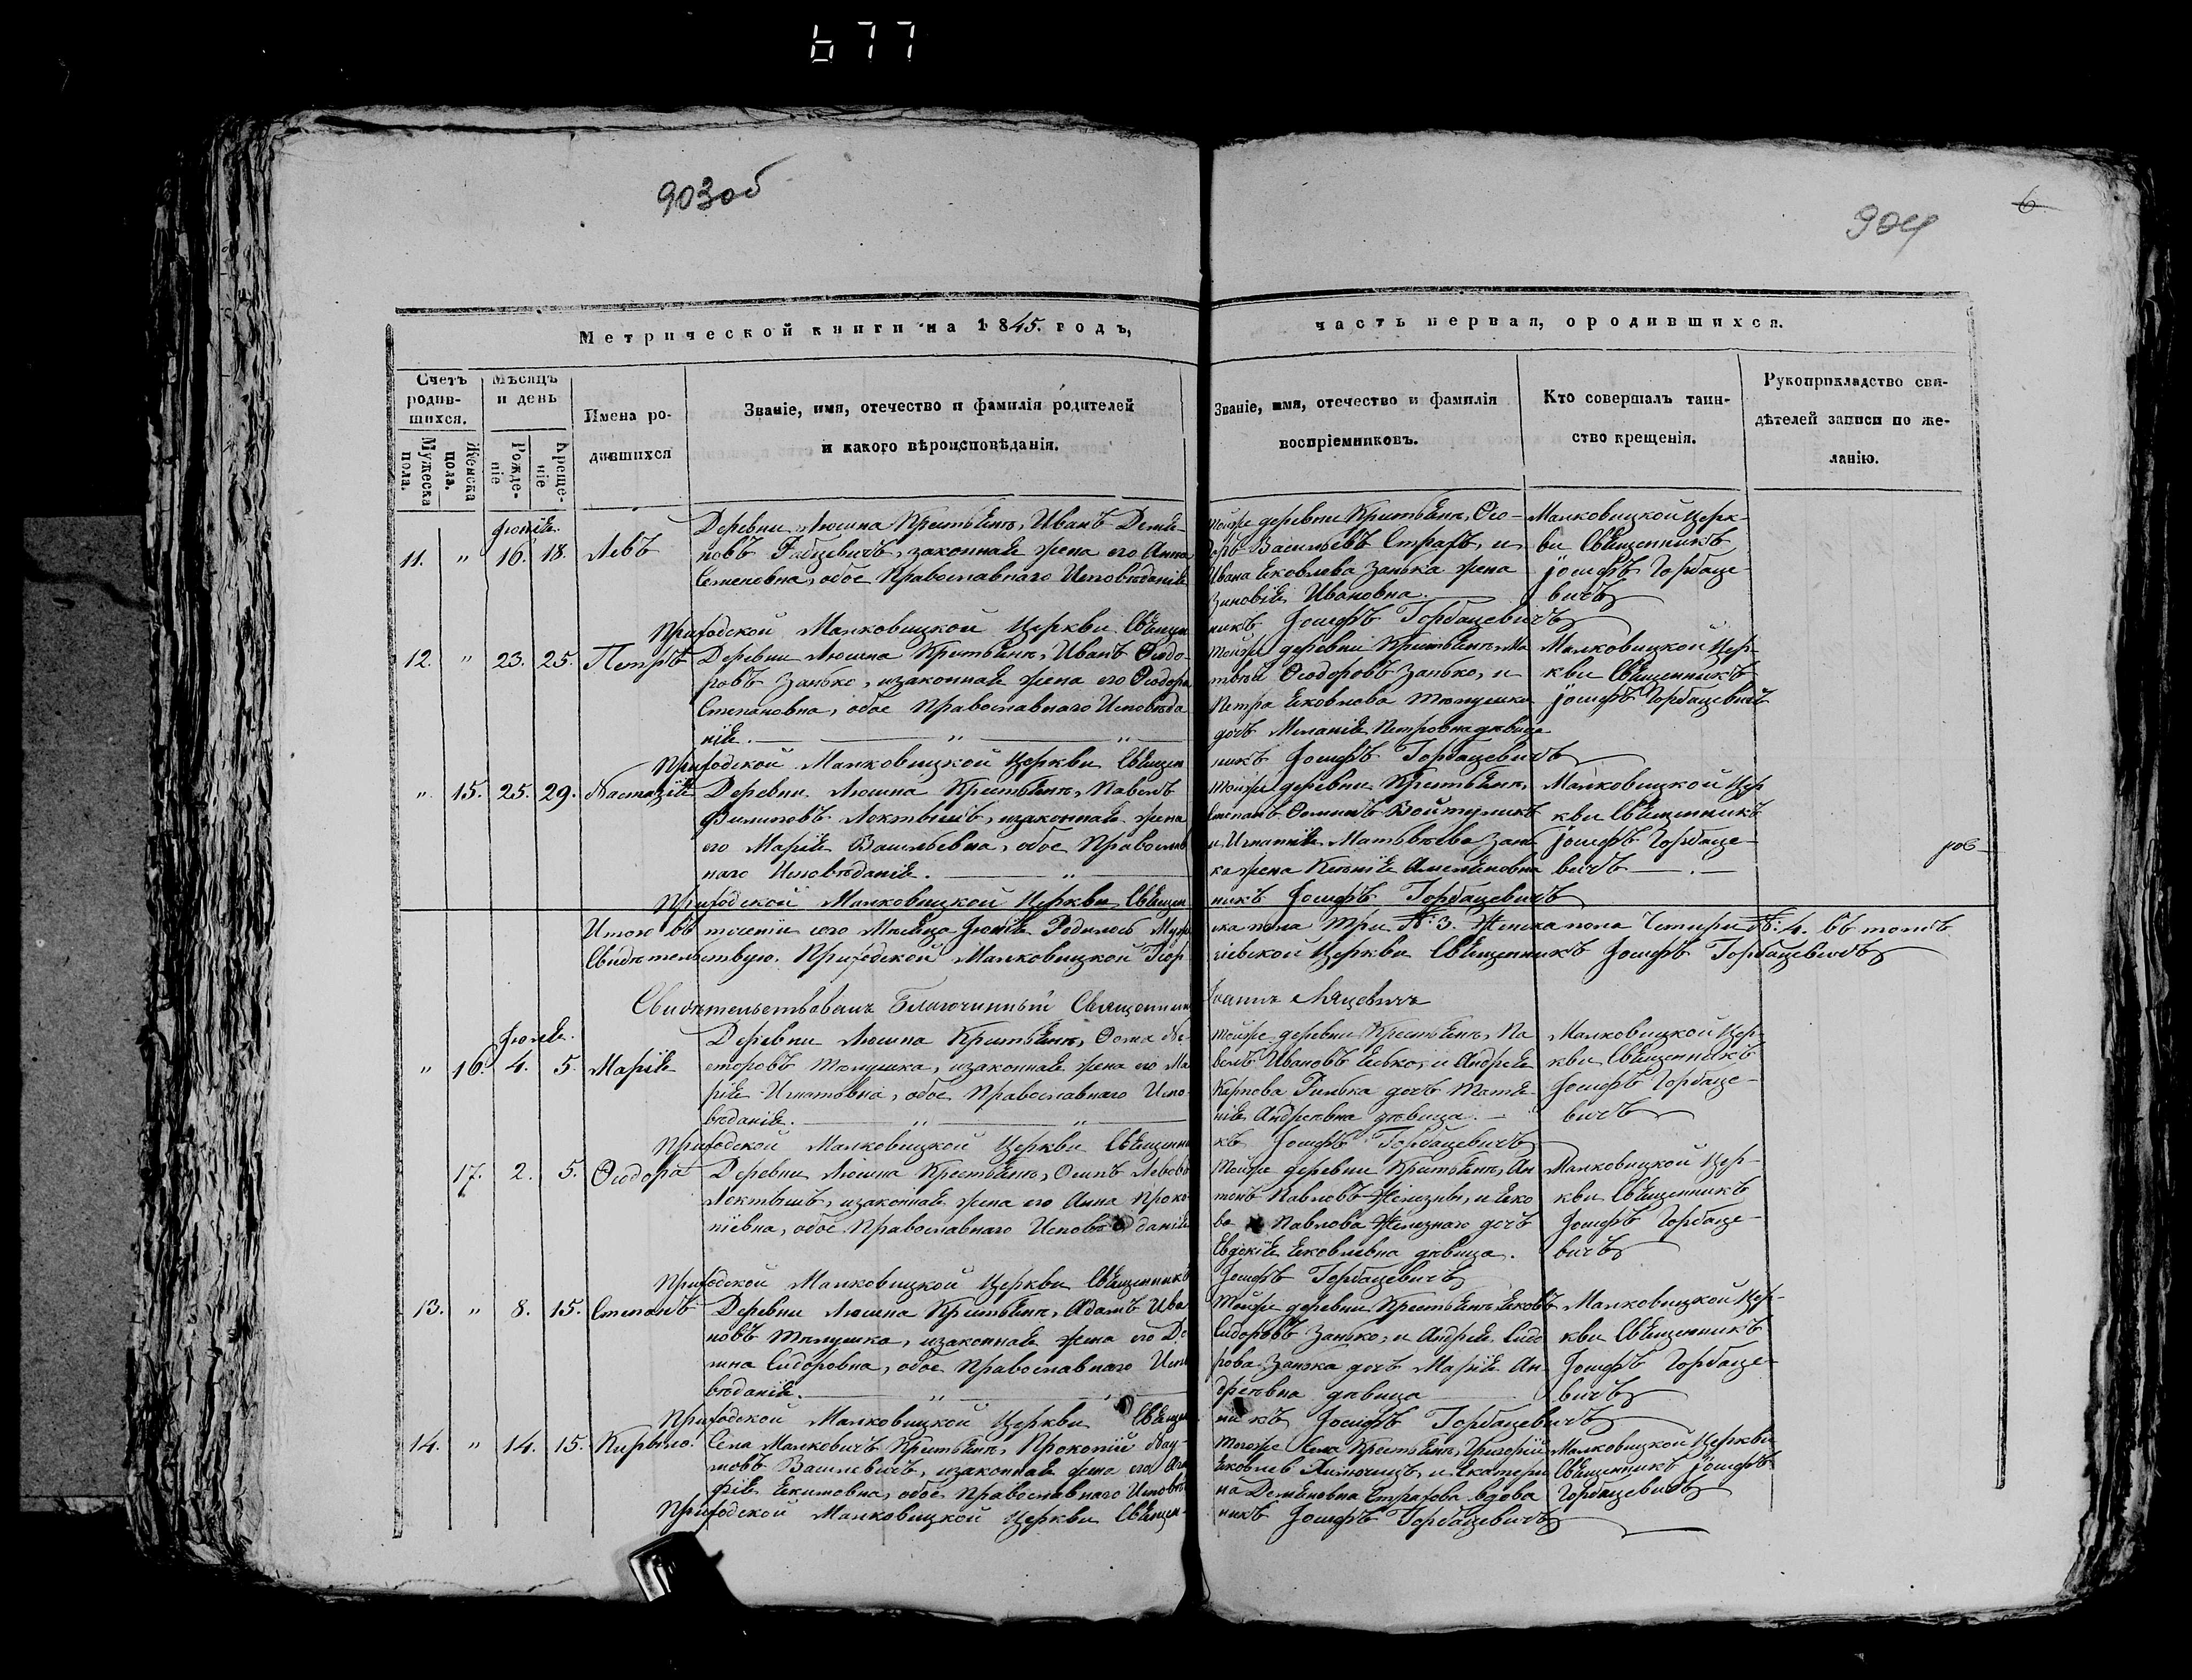 677
903об
904
6
Метрической книги на 1845. годъ,
часть первая, о родившихся.
Счетъ родив-шихся.
Мужеска пола.
Женска пола.
Мѣсяцъ и день
Рожде-ніе
Креще-ніе
Имена ро-
дившихся
Званіе, имя, отечество и фамилія родителей
и какого вѣроисповѣданія.
Званіе, имя, отечество и фамилія
воспріемниковъ.
Кто совершалъ таин-
ство крещенія.
Рукоприкладство сви-
дѣтелей записи по же-
ланію.
Іюнія.
11. " 16. 18. Левъ
Деревни Люшна Крестьянъ, Иванъ Деми-
новъ, законная жена его Анна
Семеновна, обое Православнаго Исповѣданія
Тойже деревни Крестьянъ, Ѳео-
доръ Васильевъ Страхъ, и
Ивана Яковлева Занька жена
Зиновія Ивановна.
Малковицкой Церк-
ви Священникъ
Іосифъ Горбаце-
вичъ
Приходской Малковицкой Церкви Священ
никъ Іосифъ Горбацевичъ
12. " 23. 25. Петръ
Деревни Люшна Крестьянъ, Иванъ Ѳеодо-
ровъ Занько, изаконная жена его Ѳеодора
Степановна, обое Православнаго Исповѣда
нія.
Тойже деревни Крестьянъ, Ма
твѣй Ѳеодоровъ Занько, и
Петра Яковлева Тюпушка
дочь Меланія Петровна дѣвица
Малковицкой Цер-
кви Священникъ
Іосифъ Горбацевичъ
Приходской Малковицкой Церкви Священ
никъ Іосифъ Горбацевичъ
" 15. 25. 29. Настазія
Деревни Люшна Крестьянъ, Павелъ
Филиповъ Локтышъ, изаконная жена
его Марія Васильевна, обое Православ
наго Исповѣданія.
Тойже деревни Крестьянъ,
Степанъ Войтулик
и Игнатія Матвѣева Зань
ка жена Ксенія
Малковицкой Цер
кви Священникъ
Іосифъ Горбаце-
вичъ
Приходской Малковицкой Церкви Священ
никъ Іосифъ Горбацевичъ
Итого въ теченіи сего Мѣсяца Іюнія Родилось Муж
ска пола три №: 3. Женска пола Четыри №: 4. въ томъ
Свидѣтельствую. Приходской Малковицкой Геор
гіевской Церкви Священникъ Іосифъ Горбацевичъ
Свидѣтельствовалъ Благочинный Священникъ
Іоаннъ Ляцевичъ
Іюля.
" 16. 4. 5. Марія
Деревни Люшна Крестьянъ, Ѳома Не-
сторовъ Тюпушка, изаконная жена его Ма
рія Игнатовна, обое Православнаго Испо-
вѣданія.
Тойже деревни Крестьянъ, Па
велъ Ивановъ, и Андрея
Карпова дочь
Андреевна дѣвица.
Малковицкой Цер-
кви Священникъ
Іосифъ Горбаце-
вичъ
Приходской Малковицкой Церкви Священни
къ Іосифъ Горбацевичъ
17. 2. 5. Ѳеодора
Деревни Люшна Крестьянъ, Осипъ Левовъ
Локтышъ, изаконная жена его Анна Проко-
піевна, обое Православнаго Исповѣданія
Тойже деревни Крестьянъ, Ан
тонъ Павловъ, и Яко
ва Павлова Железнаго дочь
Евдокія Яковлевна дѣвица.
Малковицкой Цер-
кви Священникъ
Іосифъ Горбаце-
вичъ
Приходской Малковицкой Церкви Священникъ
Іосифъ Горбацевичъ
13. " 8. 15. Степанъ
Деревни Люшна Крестьянъ, Адамъ Ива
новъ Тюпушка, изаконная жена его До
мна Сидоровна, обое Православнаго Испо
вѣданія.
Тойже деревни Крестьянъ, Яковъ
Сидоровъ Занько, и Андрея Сидо
рова Занька дочь Марія Ан-
дреевна дѣвица
Малковицкой Цер-
кви Священникъ
Іосифъ Горбаце-
вичъ
Приходской Малковицкой Церкви Священ
никъ Іосифъ Горбацевичъ
14. " 14. 15. Кирыло.
Села Малковичъ Крестьянъ, Прокопій Нау-
мовъ Василевичъ, изаконная жена его Ага
фія Екимовна, обое Православнаго Исповѣ
Тогоже Села Крестьянъ, Григорій
Яковлев, и Екатери
на Демяновна Страхова вдова
Малковицкой Церкви
Священникъ Іосифъ
Горбацевичъ
Приходской Малковицкой Церкви Священ-
никъ Іосифъ Горбацевичъ